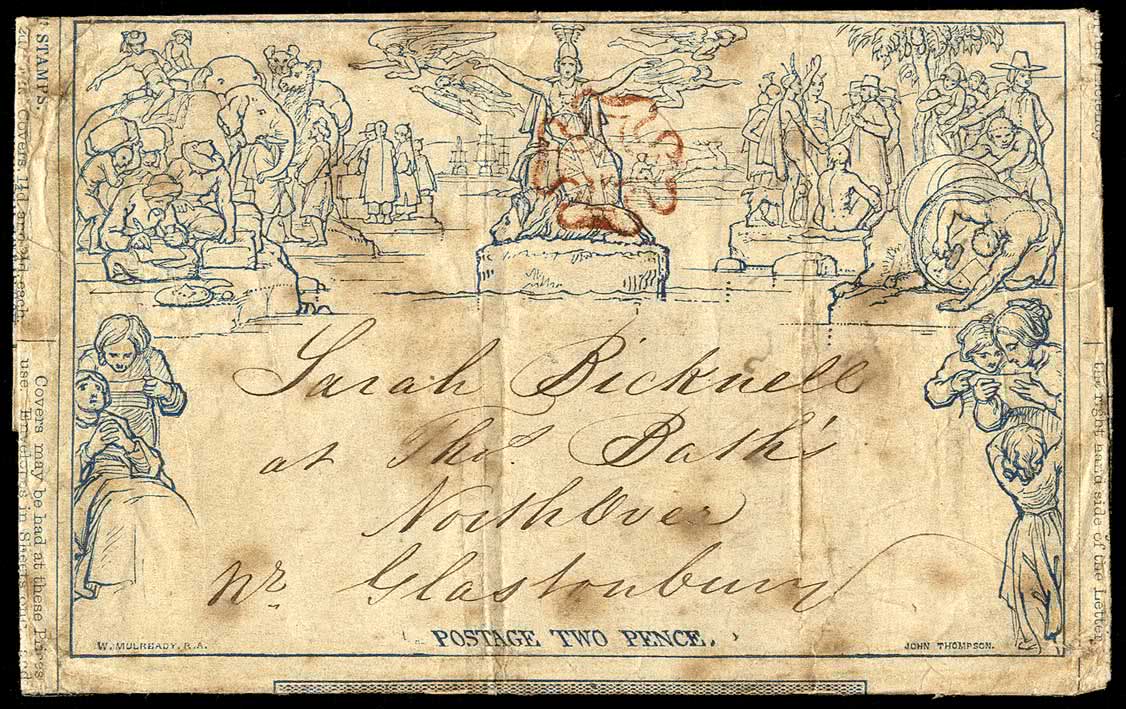 Sarah Bicknell
at Thos. Bath's
NorthOver
nr. Glastonbury
POSTAGE TWO PENCE.
W. MULREADY, R.A.
JOHN THOMPSON.
STAMPS.
Covers may be had at these Prices
use. Envelopes in Sheets
the right hand side of the Letter